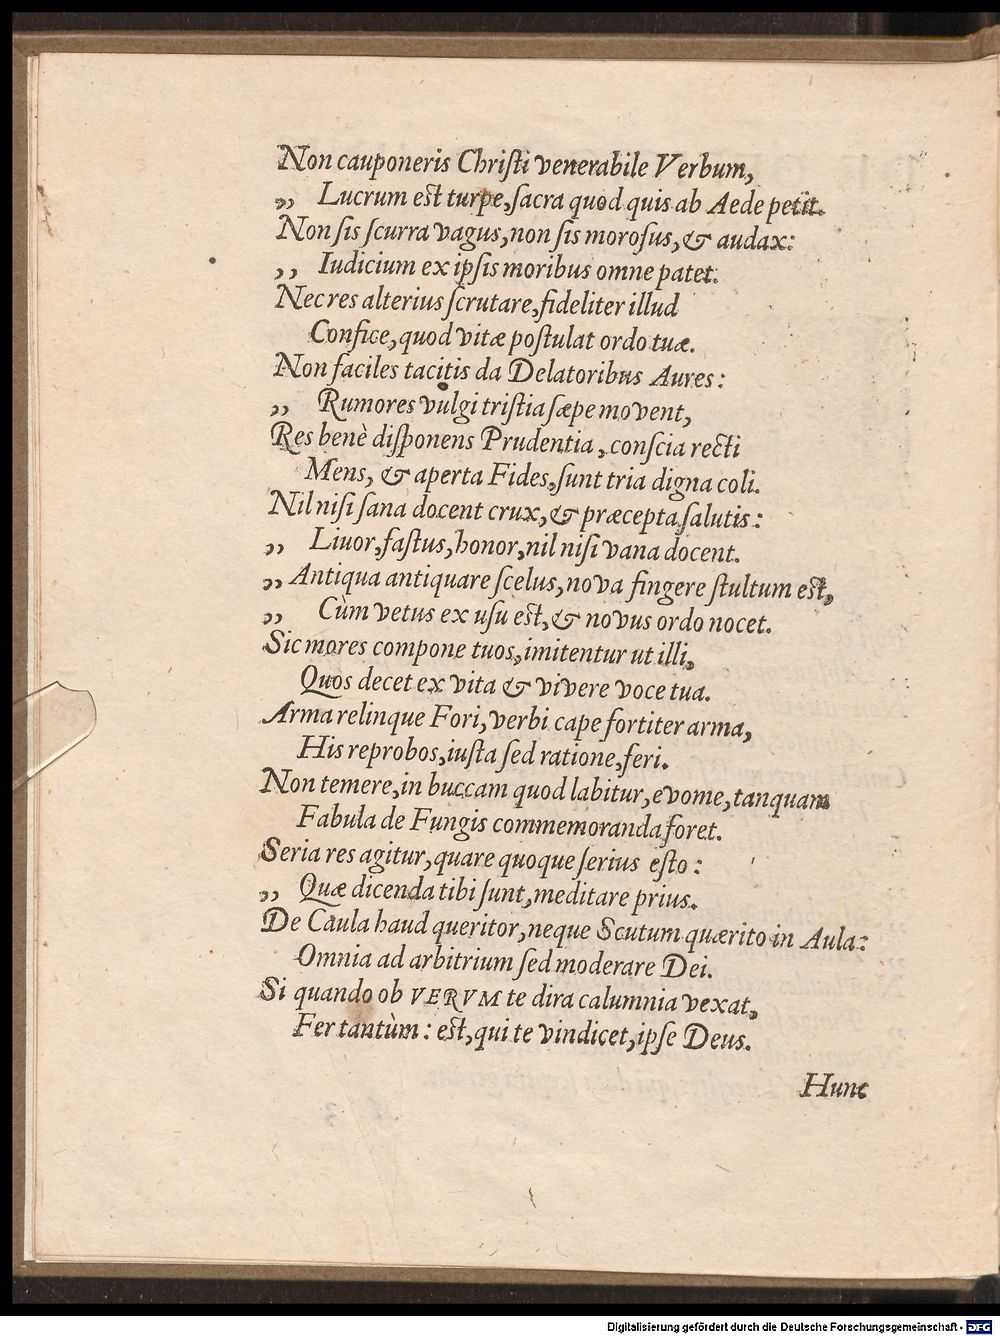 Non cauponeris Chriſti venerabile Verbum,
„ Lucrum eſt turpe, ſacra quod quis ab Aede petit.
Non ſis ſcurra vagus, non ſis moroſus, & audax:
,, Iudicium ex ipſis moribus omne patet.
Nec res alterius ſcrutare, fideliter illud
Confice, quod vitæ poſtulat ordo tuæ.
Non faciles tacitis da Delatoribus Aures:
„ Rumores vulgi triſtia ſæpe movent,
Res benè diſponens Prudentia, conſcia recti
Mens, & aperta Fides, ſunt tria digna coli.
Nil niſi ſana docent crux, & præcepta ſalutis:
„ Livor, faſtus, honor, nil niſi vana docent.
„ Antiqua antiquare ſcelus, nova fingere ſtultum eſt,
„ Cùm vetus ex uſu eſt, & novus ordo nocet.
Sic mores compone tuos, imitentur ut illi,
Quos decet ex vita & vivere voce tua.
Arma relinque Fori, verbi cape fortiter arma,
His reprobos, iuſta ſed ratione, feri.
Non temere, in buccam quod labitur, evome, tanquam
Fabula de Fungis commemoranda foret.
Seria res agitur, quare quoque ſerius eſto:
„ Quæ dicenda tibi ſunt, meditare prius.
De Caula haud queritor, neque Scutum quærito in Aula:
Omnia ad arbitrium ſed moderare Dei.
Si quando ob VERVM te dira calumnia vexat,
Fer tantùm: eſt, qui te vindicet, ipſe Deus.
Hunc
Digitalisierung gefördert durch die Deutsche Forschungsgemeinschaft - DFG